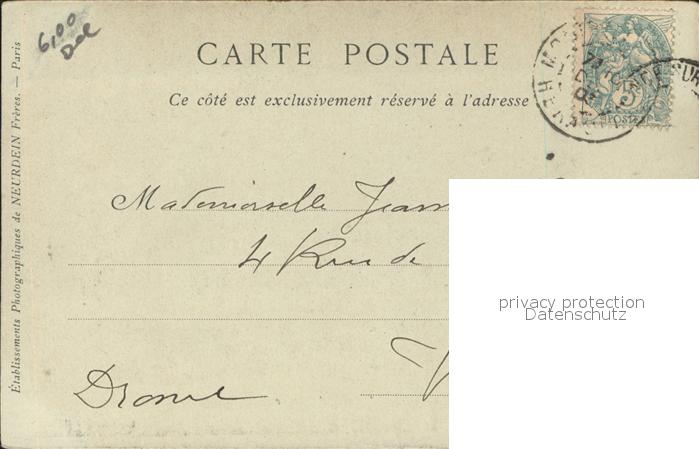 6,00
CARTE POSTALE
Ce côté est exclusivement réservé à l'adresse
POSTES
Mademoiselle Jean
4 Rue de
privacy protection
Datenschutz
V
Drome
Établissements Photographiques de NEURDEIN Frères. — Paris